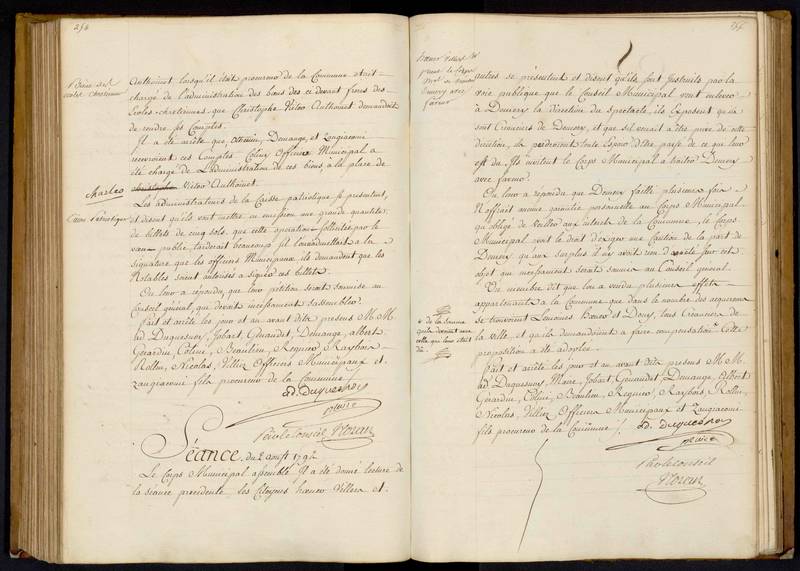 254
Biens des
écoles chrétiennes
Anthoinet, lorsqu'il était procureur de la Commune était
chargé de l'administration des biens des ci devant freres des
Ecoles chrétiennes. que Christophe Victor Anthoinet demandait
de rendre ses Comptes.
Il a été arrêté que Demange, et Zangiacomi
recevraient ces Comptes. Coliny Officier Municipal a
été chargé de L'administration de ces biens à la place de
Charles
Victor Anthoinet.
Caisse Patriotique
Les administrateurs de la Caisse patriotique se présentent,
et disent qu'ils vont mettre en emission une grande quantité
de billets de cinq sols, que cette operation sollicitée par le
vœu public, tarderait beaucoup s'il fallait à la
signature que les officiers Municipaux, ils demandent que les
Notables soient autorisés a signer ces billets.
On leur a répondu, que leur pétition serait soumise au
Conseil général, que devait incessamment s'assembler.
Fait et arrêté les jour et an avant dits présens M. M.
ad. Duquesnoy, Jobart, Genaudet, Demange, albert
Gerardin, Coliny, Beaulieu, Regnier, Raybois
Rollin, Nicolas, Villiez Officiers Municipaux et
Zangiacomi fils procureur de la Commune /.
ad. Duquesnoy
maire
Par le Conseil
Noreau
Séance, du 2 août 1792
Le Corps Municipal assemblé Il a été donné lecture de
la séance précedente les Citoyens hœner Villiers et
255
autres se présentent et disent qu'ils sont instruits par la
voie publique que le Conseil Municipal veut enlever
à Demery la direction du Spectacle, ils Exposent qu'ils
sont Créanciers de Demery, et que s'il venait a être privé de cette
direction, ils perdroient toute Espoir d'être payés de ce que leur
est du. Ils invitent le Corps Municipal à traiter Demery
avec faveur
On leur a répondu que Demery failli plusieurs fois
N'offrait aucune garantie personnelle au Corps Municipal.
qu'obligé de veiller aux intérets de la Commune, le Corps
Municipal avait le droit d'éxiger une Caution de la part de
Demery qu'au surplus il n'y avait rien d'arrêté sur cet
objet qui incessamment serait soumis au Conseil général.
Un membre dit que l'on a vendu plusieurs effets
appartenants à la Commune que dans le nombre des acquereurs
se trouvoient Lemoines hœner et Dony, tous Créanciers de
la ville, et qu'ils demandoient a faire compensation Cette
proposition a été adoptée.
+ de la somme
qu'ils devoient avec
celle qui leur était
dû
Fait et arrêté les jour et an avant dits présens M M.
ad. Duquesnoy, Maire, Jobart, Genaudet, Demange, Albert
Gerardin, Coliny, Beaulieu, Regnier, Raybois, Rollin,
Nicolas, Villiez Officiers Municipaux et Zangiacomi
fils procureur de la Commune /.
ad. Duquesnoy
maire
Par le Conseil
Noreau